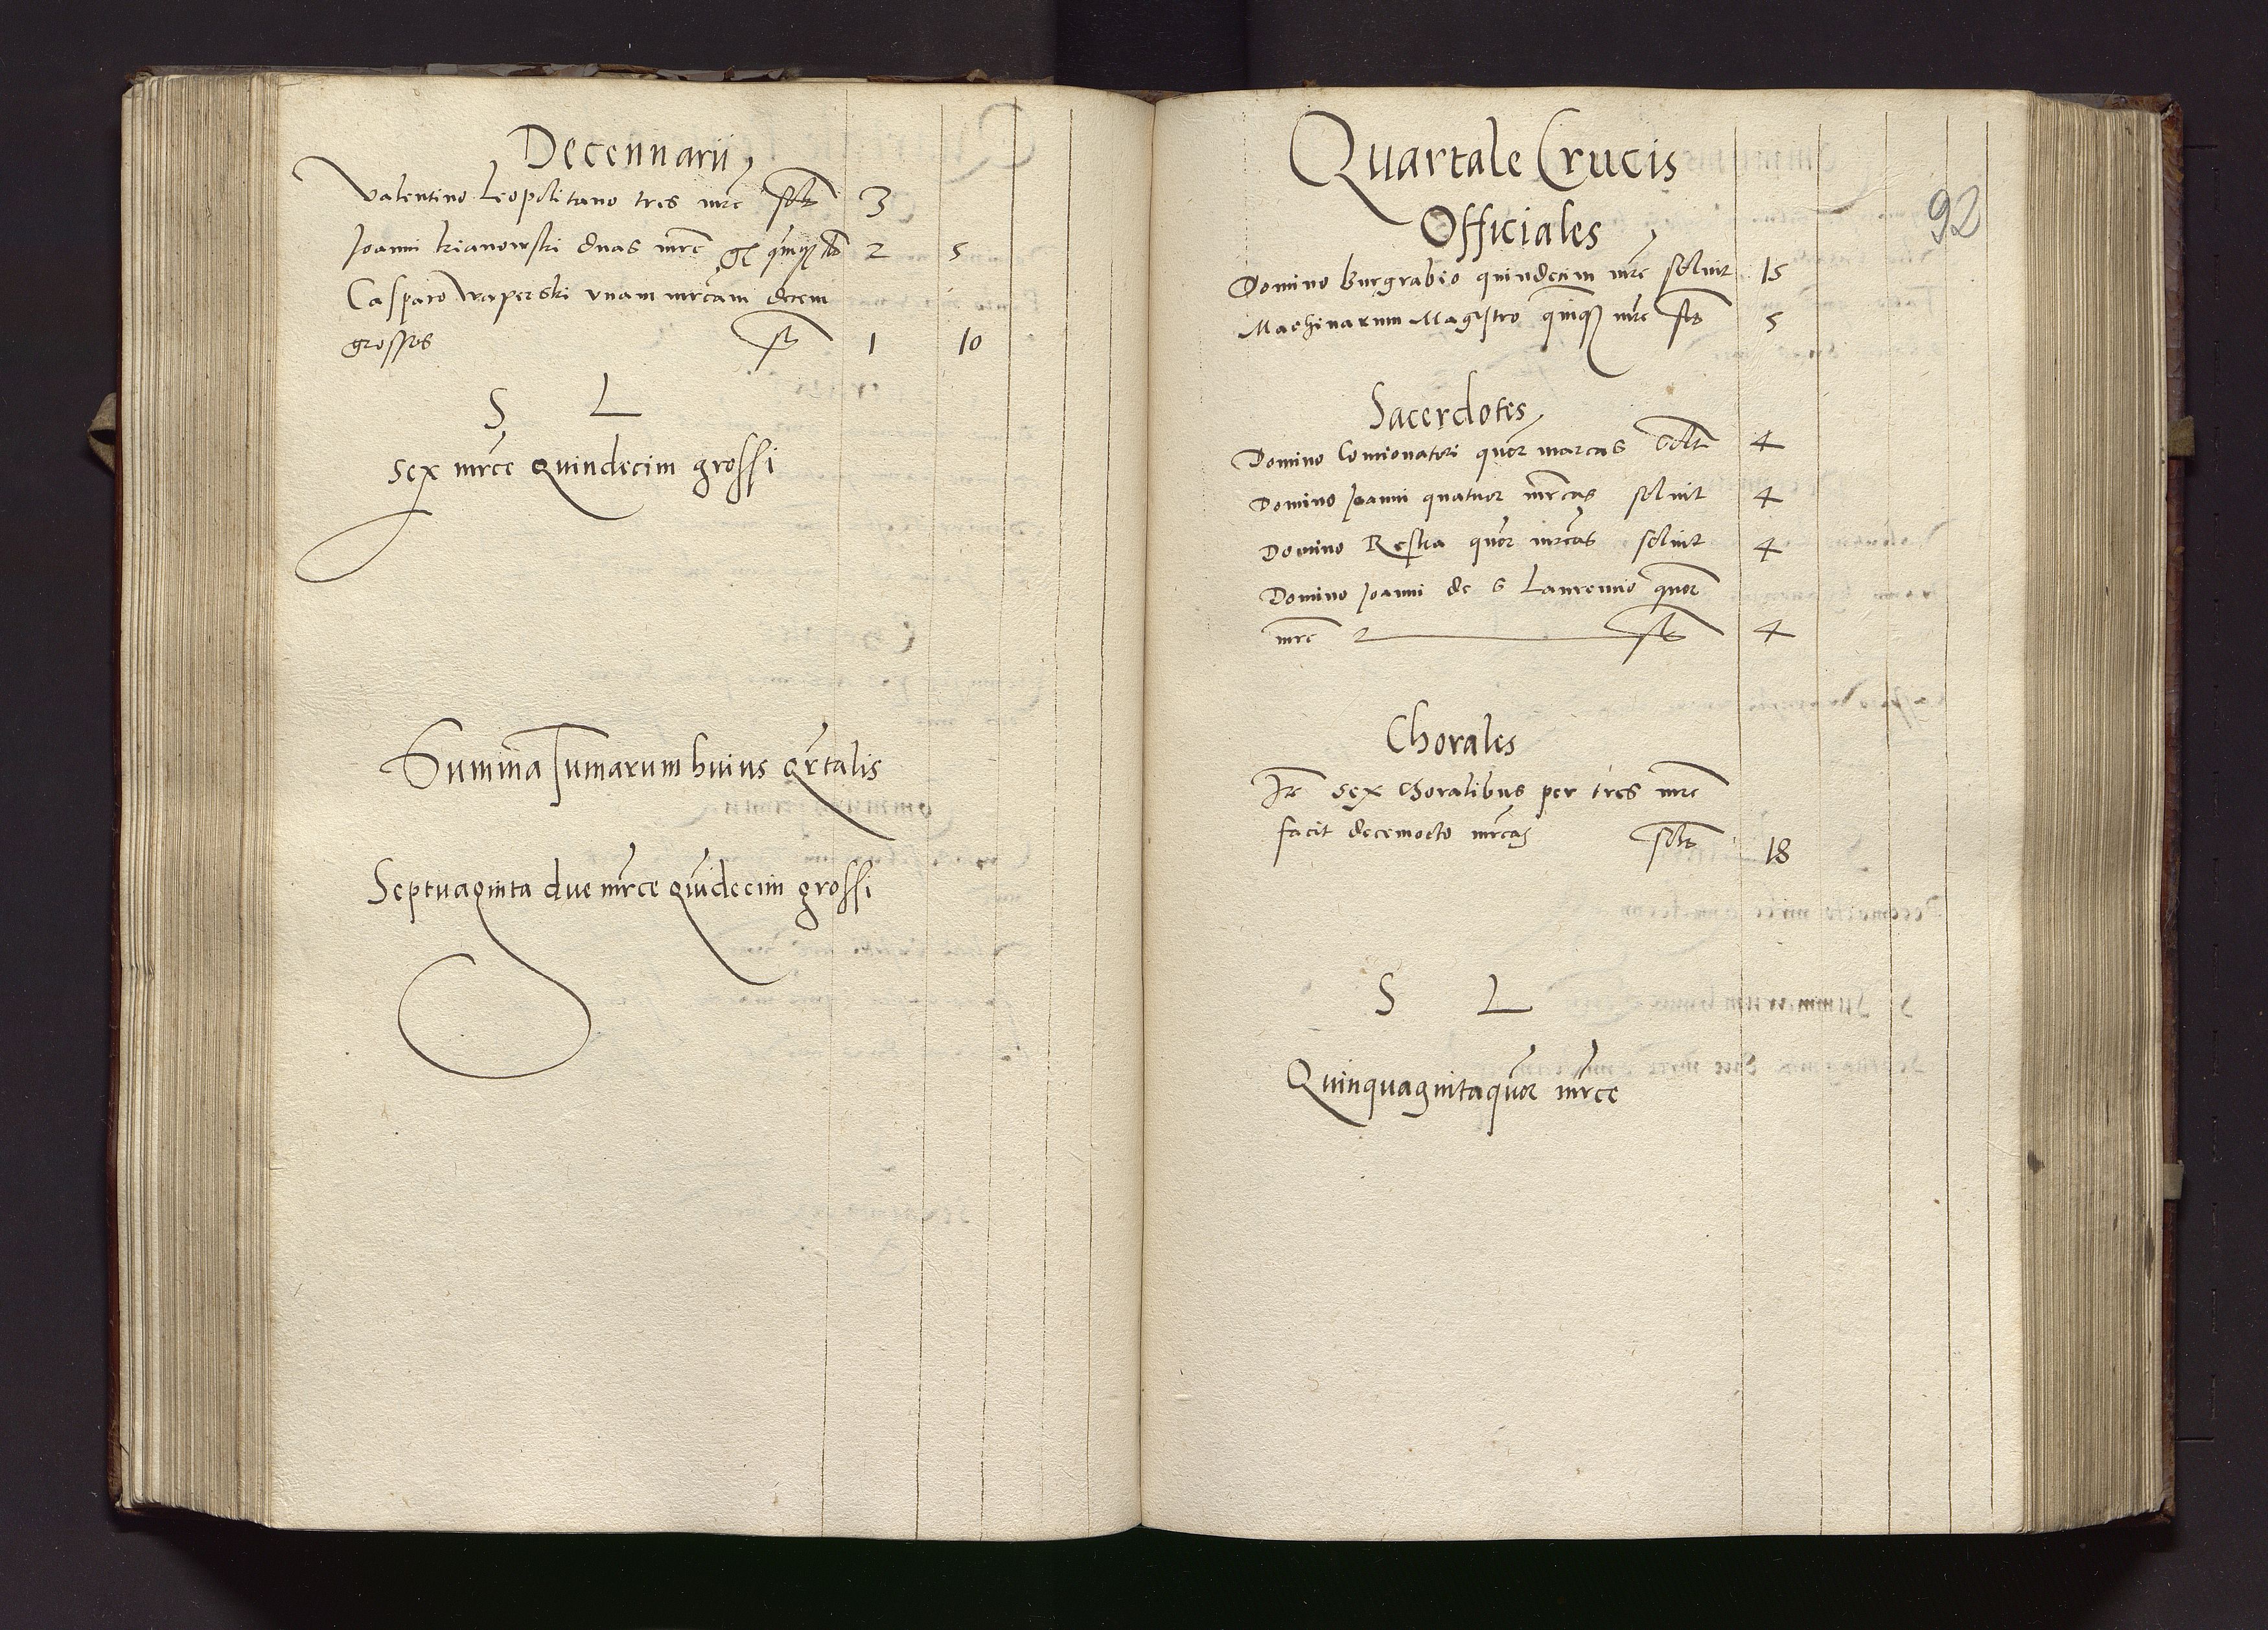 Decennarii
Valentino Leopolitano tres mrc solt 3
Joanni kianowski duas mrc gr quinqz 2 5
Casparo Waperski vnam mrcam decem
grossos st 1 10
S L
Sex mrce quindecim grossi
Summa sumarum huius qrtalis
Septuaginta due mrce quidecim grossi
92
Quartale Crucis
Officiales
Domino Burgrabio quindecim mrc soluit 15
Machinarum Magistro quinqz mrc sols 5
Sacerdotes
Domino Contionatori quor marcas solt 4
Domino Joanni quatuor mrcas soluit 4
Domino Reska quor mrcas soluit 4
Domino Joanni de S Laurentio quor
mrc sols 4
Chorales
Ite sex choralibus per tres mrc
facit decemocto mrcas sols 18
S L
Quinquagintaquor mrce